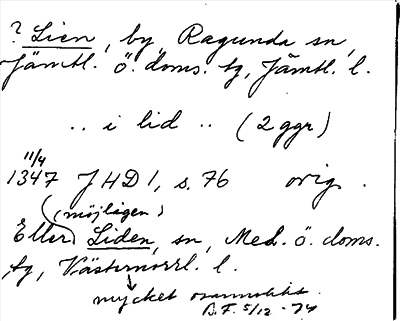 ? Lien, by, Ragunda sn,
Jämtl. ö. doms. tg, Jämtl. l.
.. i lid .. (2 ggr)
11/4
1347 JHD 1, s. 76 orig.
(möjligen)
Eller Liden, sn, Med. ö. doms.
tg, Västernorrl. l.
mycket osannolikt.
B.F. 5/12 -74